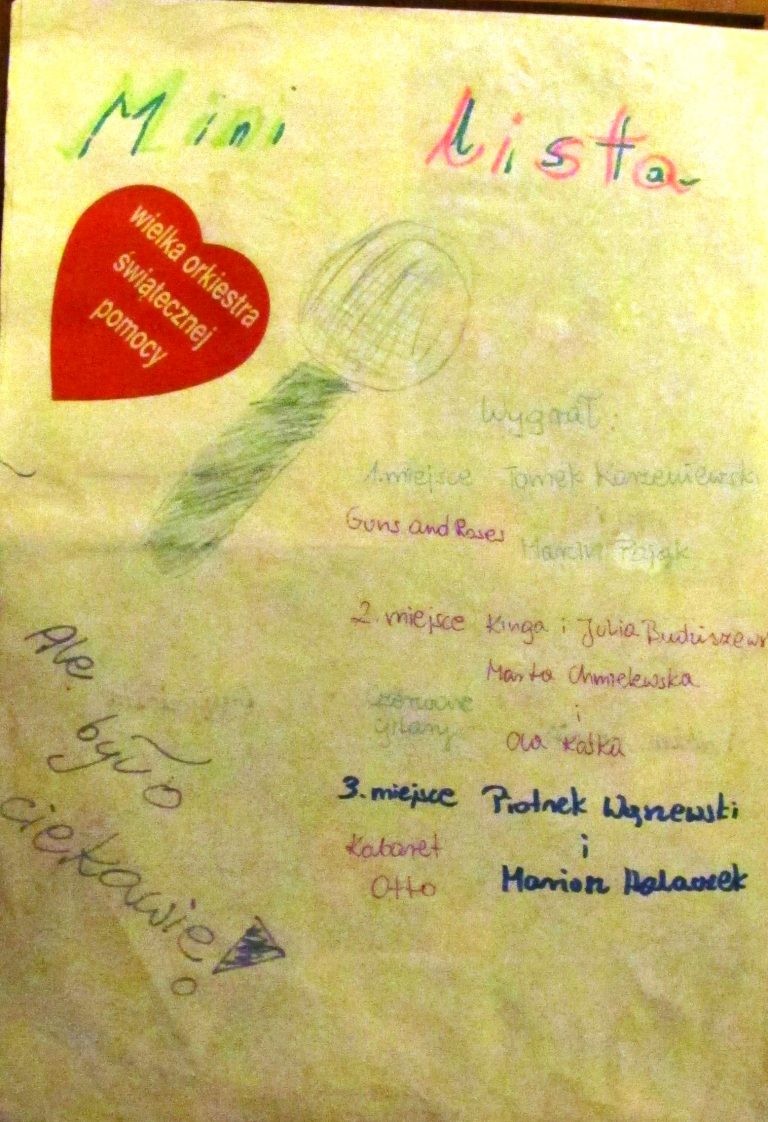 Mini Lista
wielka orkiestra
świątecznej
pomocy
Wygrał:
1. miejsce Tomek Karzeniewski
i
Guns and Roses Marcin Pająk
2. miejsce Kinga i Julia Budziszews
Marta Chmielewska
Czerwone i
gitary Ola Kaśka
3. miejsce Piotrek Wąszewski
Kabaret i
Otto Mariosz
Ale
było
ciekawie!